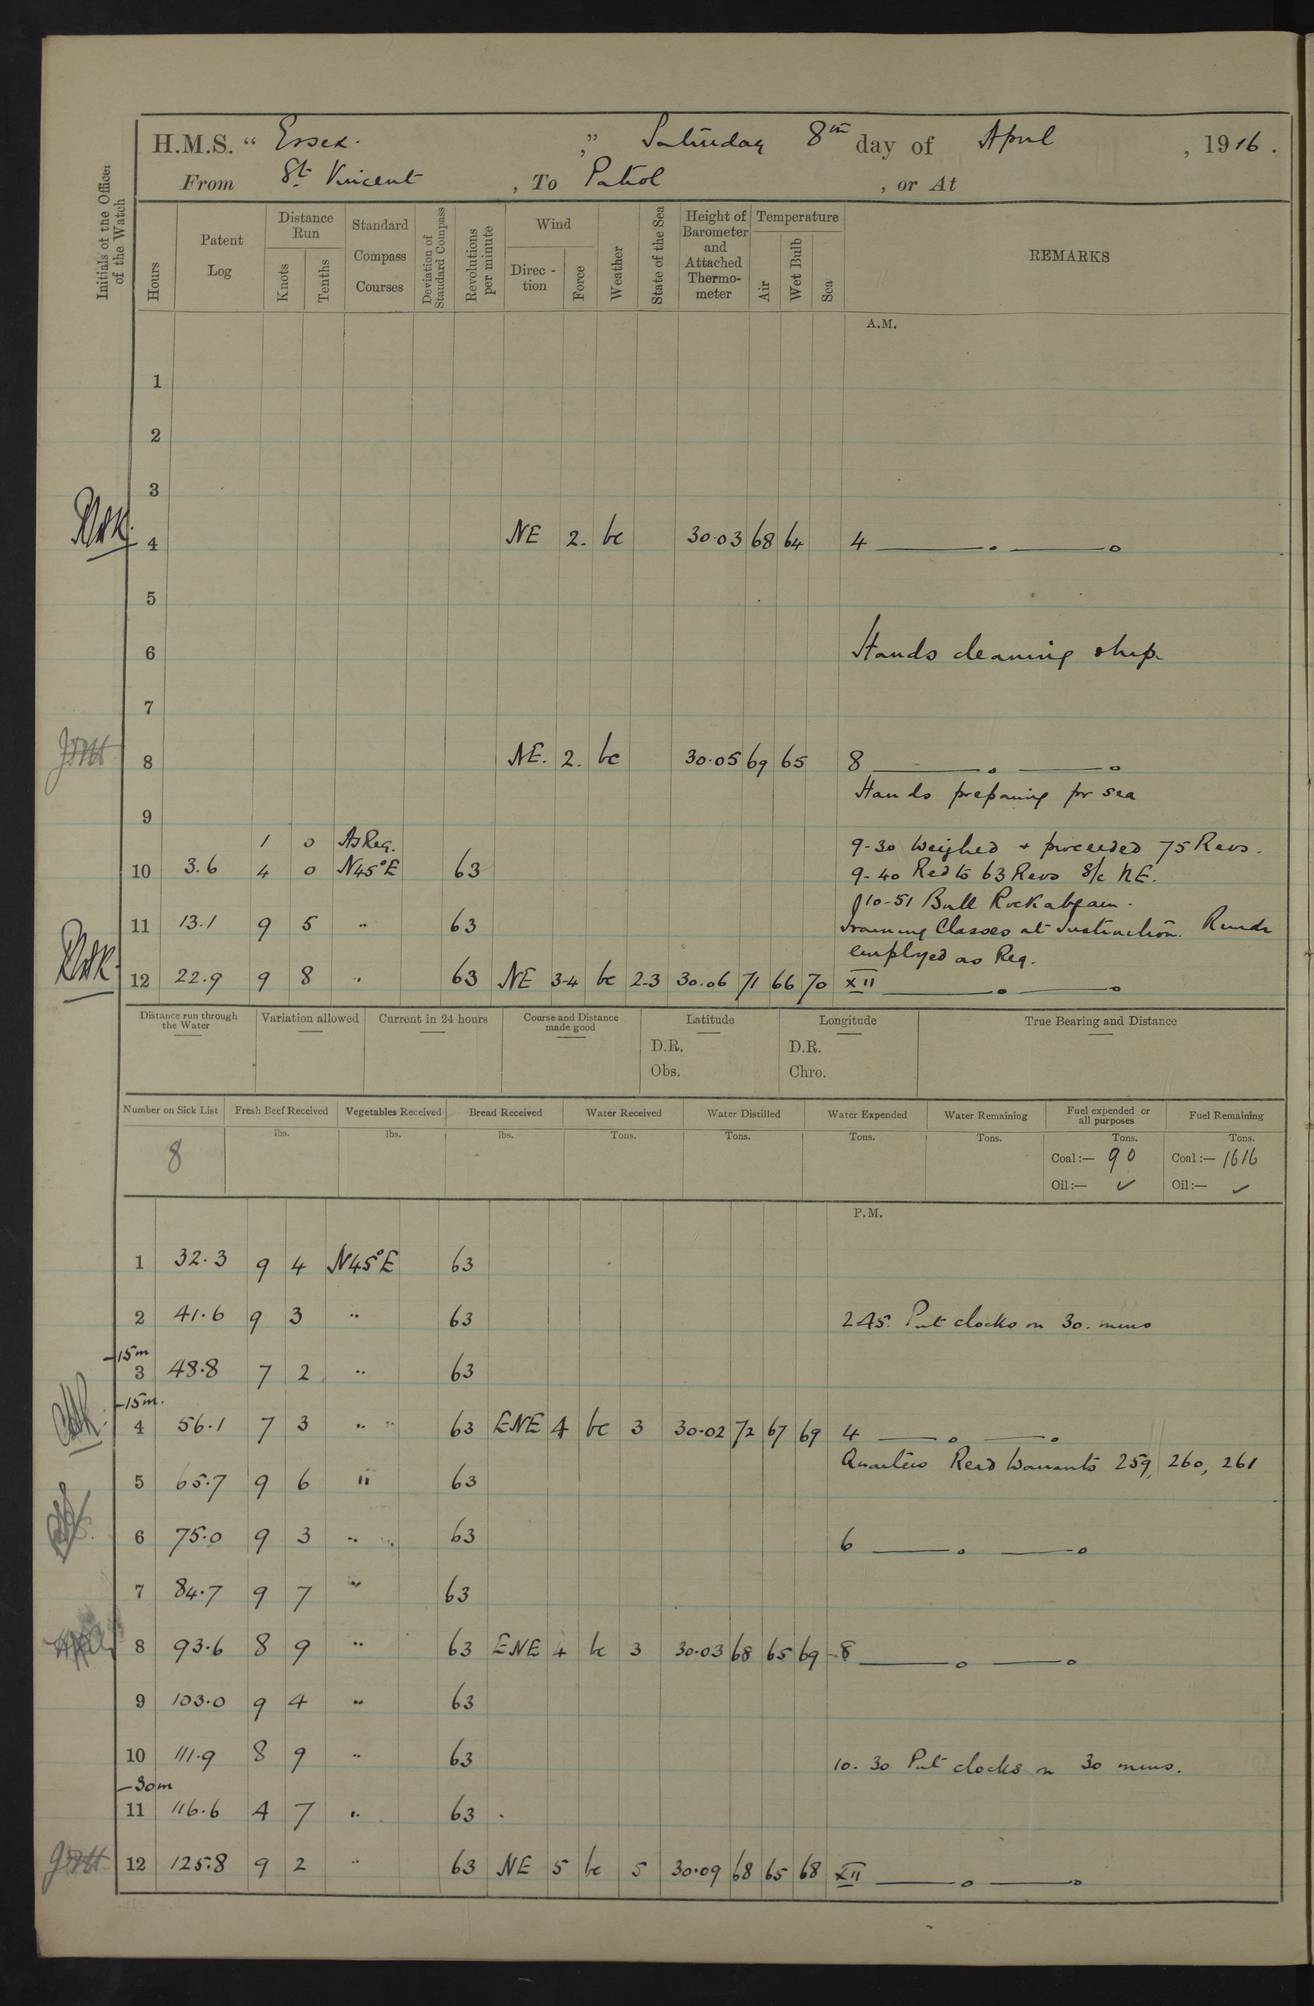 H.M.S. “ Essex. ” Saturday 8th day of April , 1916.
From St Vincent , To Patrol , or At
Initials of the Officer of the Watch
Hours
Patent Log
Distance Run
Knots
Tenths
Standard Compass Courses
Deviation of Standard Compass
Revolutions per minute
Wind
Direc-tion
Force
Weather
State of the Sea
Height of Barometer and Attached Thermo-meter
Temperature
Air
Wet Bulb
Sea
REMARKS
A.M.
1
2
3
4 NE 2. bc 30.03 68 64 4
5
6 Hands cleaning ship.
7
8 NE. 2. bc 30.05 69 65 8
Hands preparing for sea
9
1 0 As Req. 9-30 Weighed + proceeded 75 Revs.
10 3.6 4 0 N45°E 63 9-40 Red to 63 Revs S/c NE.
10-51 Bull Rock abeam.
11 13.1 9 5 " 63 Training Classes at Instruction. Remdr
employed as Req.
12 22.9 9 8 " 63 NE 3-4 bc 2-3 30.06 71 66 70 XII
Distance run through the Water
Variation allowed
Current in 24 hours
Course and Distance made good
Latitude
D.R.
Obs.
Longitude
D.R.
Chro.
True Bearing and Distance
Number on Sick List
8
Fresh Beef Received
lbs.
Vegetables Received
lbs.
Bread Received
lbs.
Water Received
Tons.
Water Distilled
Tons.
Water Expended
Tons.
Water Remaining
Tons.
Fuel expended or all purposes
Tons.
Coal:— 90
Oil:— ✓
Fuel Remaining
Tons.
Coal:— 1616
Oil:— ✓
P.M.
1 32.3 9 4 N45°E 63
2 41.6 9 3 " 63 2.45. Put clocks on 30. mins
-15m
3 48.8 7 2 " 63
-15m.
4 56.1 7 3 " " 63 ENE 4 bc 3 30.02 72 67 69 4
Quarters Read Warrants 259, 260, 261
5 65.7 9 6 " 63
6 75.0 9 3 " " 63 6
7 84.7 9 7 " 63
8 93.6 8 9 " 63 ENE 4 bc 3 30.03 68 65 69 8
9 103.0 9 4 " 63
10 111.9 8 9 " 63 10.30 Put clocks on 30 mins.
-30m
11 116.6 4 7 " 63
12 125.8 9 2 " 63 NE 5 bc 5 30.09 68 65 68 XII